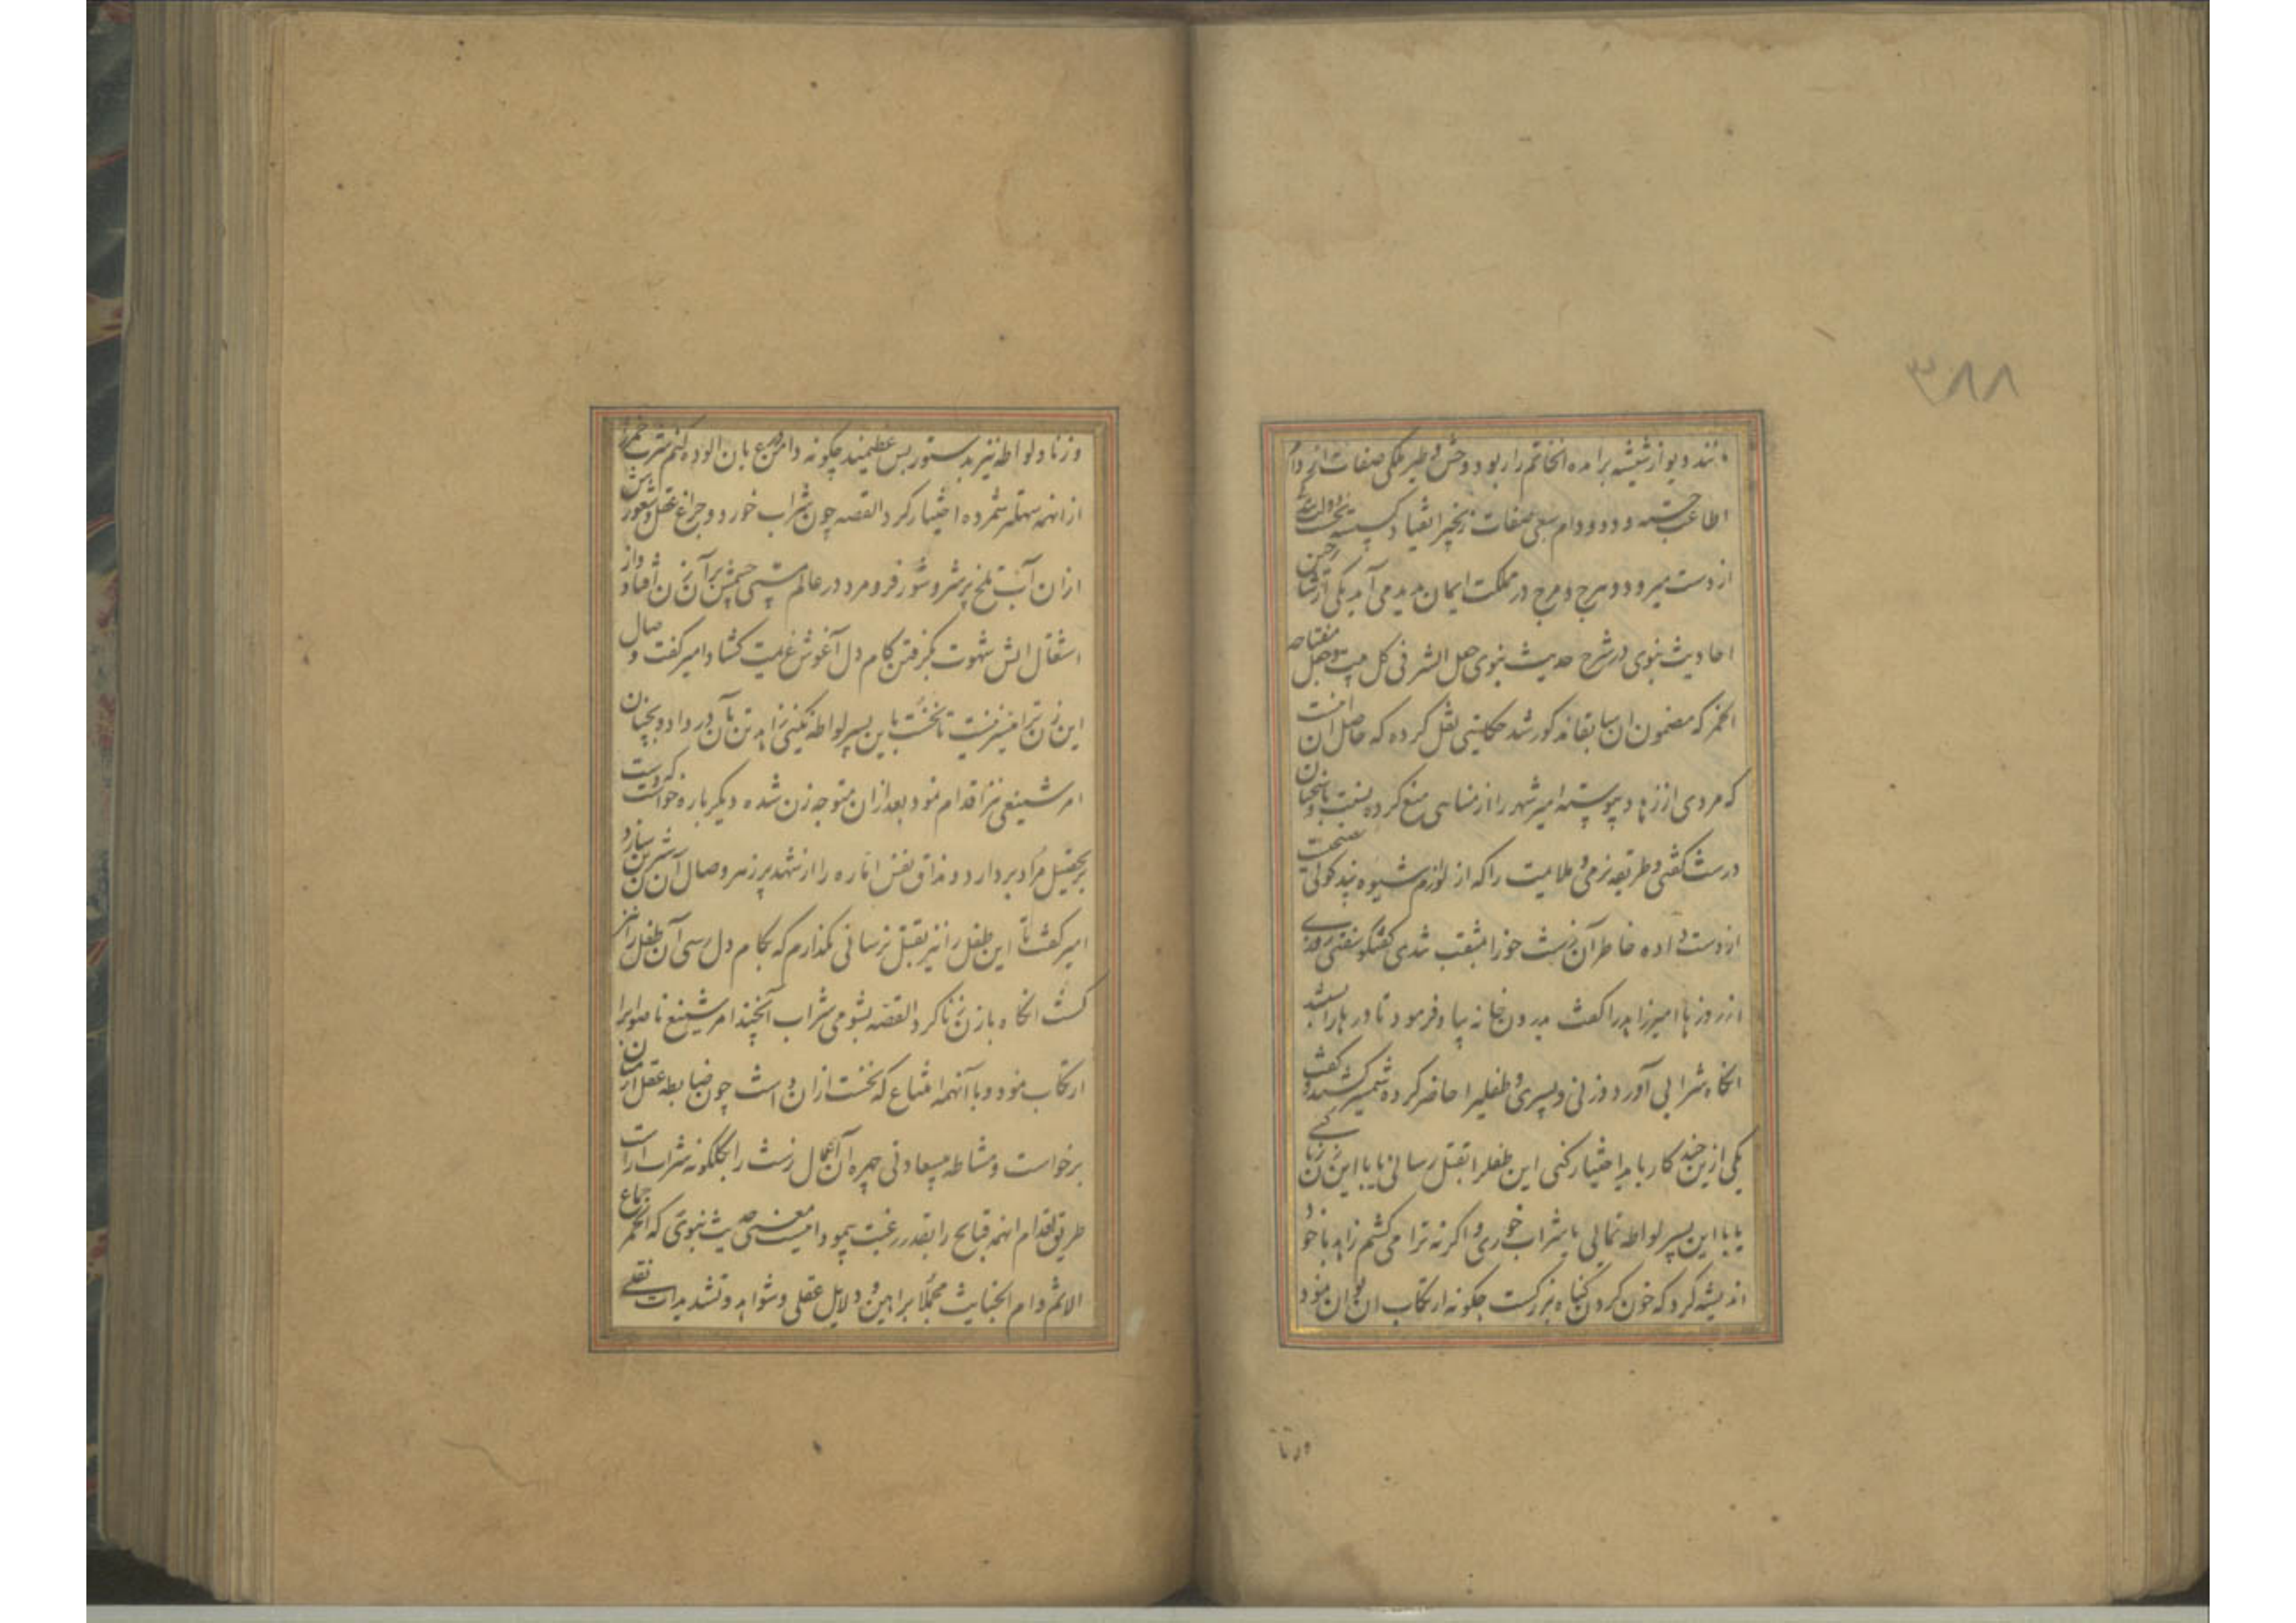 ۳۸۸
مانند دیو از شیشه برآمده انخاتم را ربود و وحش و طیر ملکی صفات
اطاعت جسته و دد و دام سبعی صفات زنجیر انقیاد کسسته تخت
از دست میرود و هرج و مرج در مملکت ایمان پدید می آید یکی از شارحین
احادیث نبوی در شرح حدیث نبوی جعل الشر فی کل بیت و جعل مفتاحه
الخمر که مضمون ان سابقا مذکور شد حکایتی نقل کرده که حاصل ان اینست
که مردی از زهاد پیوسته امیر شهر را از مناهی منع کرده نسبت باو سخنان
درشت گفتی و طریقه نرمی و ملایمت را که از لوازم شیوه پند کوئی
از دست داده خاطر آن زشت خو را منقب شدی کفتکو سفتی روزی
از روزها امیر زاهد را کفت بدرون خانه بیا و فرمود تا درها را بستند
انکاه شرابی آورد و زنی و پسری و طفلیرا حاضر کرده شمشیر کشید و کفت
یکی ازین چند کار باید اختیار کنی این طفلرا بقتل رسانی یا با این زن زنا کنی
یا با این پسر لواطه نمائی یا شراب خوری و اکر نه ترا می کشم زاهد با خود
اندیشه کرد که خون کردن کناه بزرکست چکونه ارتکاب ان توان نمود
و زنا
و زنا و لواطه نیز بدستور بس عظیمند چکونه دامن ورع بان الوده کنم شرب خمر را
از انهمه سهلتر شمرده اختیار کرد القصه چون شراب خورد و چراغ عقل و شعورش
ازان آب تلخ پر شر و شور فرو مرد در عالم مستی چشمش بر آن زن افتاد و از
اشتعال اتش شهوت بکرفتن کام دل آغوش عزیمت کشاد امیر کفت وصال
این زن ترا میسر نیست تا نخست باین پسر لواطه نکنی زاهد تن بآن در داد و بچنان
امر شنیعی نیز اقدام نمود بعد ازان متوجه زن شده دیکر باره خواست که دست
بتحصیل مراد بردارد و مذاق نفس اماره را از شهد پر زهر وصال آن شیرین سازد
امیر کفت تا این طفل را نیز بقتل نرسانی نکذارم که بکام دل رسی آن طفل را نیز
کشت انکاه بازن زنا کرد القصه بشومی شراب آنچند امر شنیع ناصواب را
ارتکاب نمود و با آنهمه امتناع که نخست ازان داشت چون ضابطه عقل از میان
برخواست و مشاطه بیسعادتی چهره آن آعمال زشت را بکلکونه شراب اراست
طریق اقدام انهمه قبایح را بقدر رغبت پیمود اینست معنی حدیث نبوی که الخمر جماع
الاثم و ام الخبایث مجملا براهین و دلایل عقلی و شواهد و تشدیدات نقلی